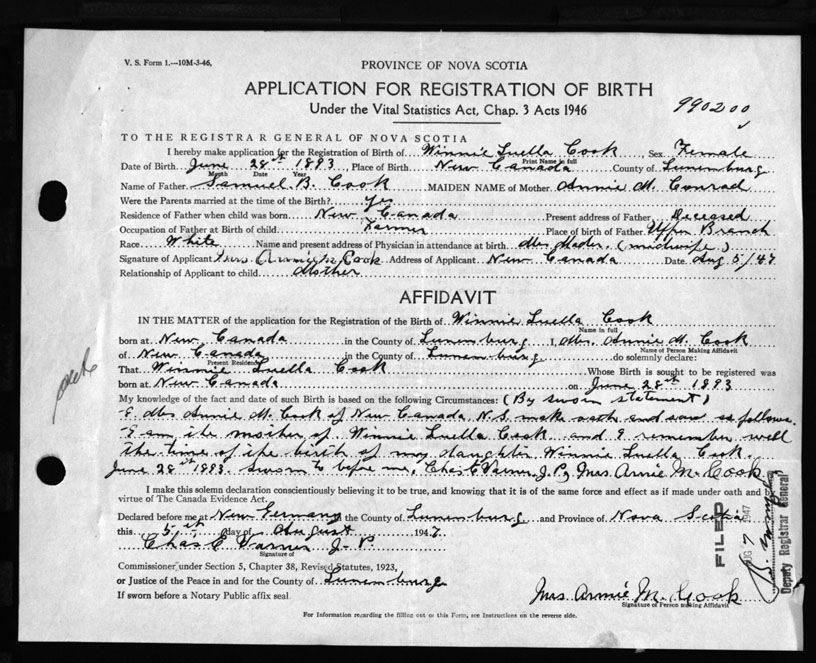 V. S. Form 1.---10M-3-46.
PROVINCE OF NOVA SCOTIA
APPLICATION FOR REGISTRATION OF BIRTH
Under the Vital Statistics Act, Chap. 3 Acts 1946
990200
TO THE REGISTRAR GENERAL OF NOVA SCOTIA
I hereby make application for the Registration of Birth of Winnie Luella Cook, Sex Female
Print Name in full
Date of Birth June 28st 1893, Place of Birth New Canada County of Lunenburg
Month Date Year
Name of Father Samuel B. Cook MAIDEN NAME of Mother Annie M. Conrad
Were the Parents married at the time of the Birth? Yes
Residence of Father when child was born New Canada Present address of Father Deceased
Occupation of Father at Birth of child Farmer Place of birth of Father Upper Branch
Race White Name and present address of Physician in attendance at birth Mrs Mader. (midwife)
Signature of Applicant Mrs Annie M Cook Address of Applicant New Canada Date Aug 5/47
Relationship of Applicant to child Mother
AFFIDAVIT
IN THE MATTER of the application for the Registration of the Birth of Winnie Luella Cook
Name in full
born at New Canada in the County of Lunenburg I, Mrs. Annie M. Cook
Name of Person Making Affidavit
of New Canada in the County of Lunenburg do solemnly declare:
Present Residence
That Winnie Luella Cook Whose Birth is sought to be registered was
born at New Canada on June 28st 1893
My knowledge of the fact and date of such Birth is based on the following Circumstances: (By sworn statement)
I Mrs Annie M. Cook of New Canada N.S. make oath and say as follows.
I am the mother of Winnie Luella Cook and I remember well
the time of the birth of my daughter Winnie Luella Cook.
June 28st 1893. Sworn to before me, Chas E Varner J.P. Mrs. Annie M. Cook
I make this solemn declaration conscientiously believing it to be true, and knowing that it is of the same force and effect as if made under oath and by
virtue of The Canada Evidence Act.
Declared before me at New Germany the County of Lunenburg and Province of Nova Scotia
this 5st day of August 1947
Chas E Varner J-P
Signature of
Commissioner under Section 5, Chapter 38, Revised Statutes, 1923,
or Justice of the Peace in and for the County of Lunenburg
If sworn before a Notary Public affix seal.
Mrs. Annie M. Cook
Signature of Person making Affidavit
For Information regarding the filling out or this Form, see Instructions on the reverse side.
FILED
AUG 7 1947
Deputy Registrar General